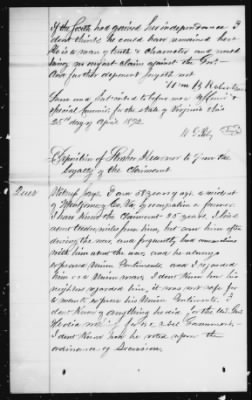 If the South had gained her independence I
dont think he could have remained here
He is a man of truth & character and would
bring no unjust claim against the Govt.
And further deponent sayeth not
Wm B. Robertson
Sworn and subscribed to before me
Special Commr. for the State of Virginia this
25th day of April 1872
Deposition of to prove the
loyalty of the Claimant
Witness says I am 53 years of age a resident
of Montgomery Co. Va by occupation a farmer
I have known the Claimant 25 years. I lived
about miles from him, but saw him often
during the war, and frequently had conversations
with him about the war, and he always
expressed Union Sentiments. And I regarded
him as a Union man. I dont know how his
neighbors regarded him, it was not safe for
to express his Union Sentiments. I
dont know of anything he did for the U.S. Govt
He did not
I dont know how he voted upon the
ordinance of Secession.